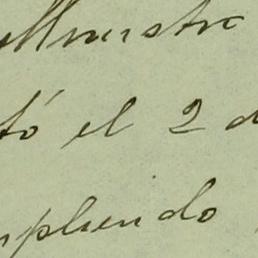 Ministro
tó el 2 d
mpliendo